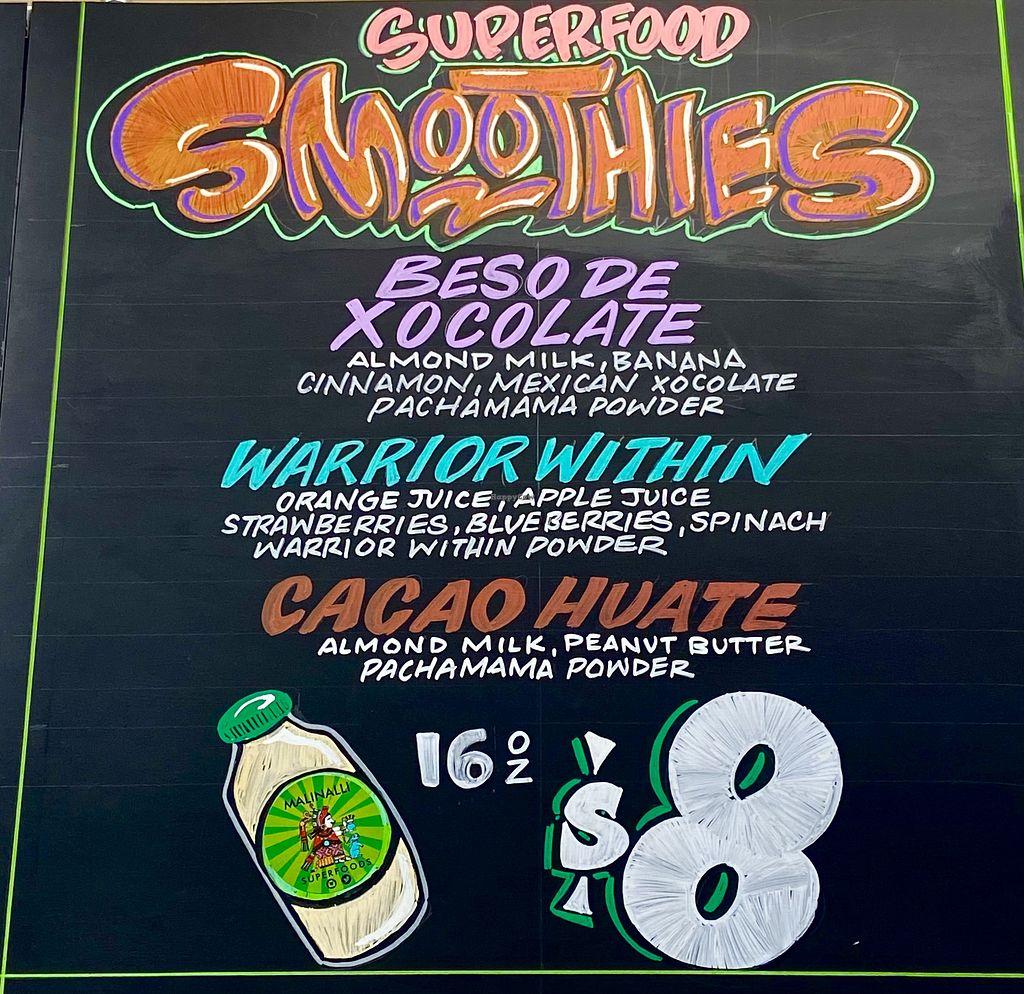 SUPERFOOD
SMOOTHIES
BESO DE
XOCOLATE
ALMOND MILK, BANANA
CINNAMON, MEXICAN XOCOLATE
PACHAMAMA POWDER
WARRIOR WITHIN
ORANGE JUICE, APPLE JUICE
STRAWBERRIES, BLUEBERRIES, SPINACH
WARRIOR WITHIN POWDER
CACAO HUATE
ALMOND MILK, PEANUT BUTTER
PACHAMAMA POWDER
16 OZ
$8
MALINALLI
SUPERFOODS